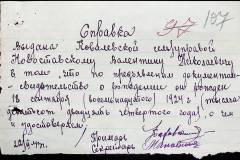 Справка 97 197
Выдана Ковалевской сельуправой
Новоставскому Валентину Николаевичу
в том, что по предъявленым документам
свидетельство о рождении он рожден
18 сентября (восемнадцатого) 1924 г тысяча
девятьсот двадцать четвертого года, о чем
и удостоверяем
Секретарь